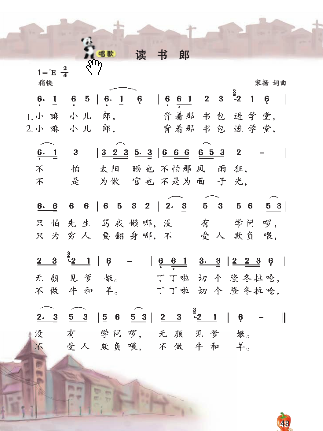 唱歌
读书郎
1=E 2/4
稍快
宋扬 词曲
6. 1 6 5 | 6. 1 6 | 6 6 1 2 3 | 2 1 6 |
1.小嘛小儿郎， 背着那书包进学堂，
2.小嘛小儿郎， 背着那书包进学堂，
6. 1 3 | 3 2 3 5. 3 | 6 6 6 6 5 3 | 2 - |
不怕太阳晒也不怕那风雨狂，
不是为做官也不是为面子光，
6. 6 6 6 | 6 5 3 5 | 2. 3 5 3 | 5 6 5 3 |
只怕先生骂我懒哪，没有学问啰，
只为穷人要翻身哪，不受人欺负喂，
2 3 2 1 | 6 - | 6 6 1 3. 3 | 2 2 3 6 |
无颜见爹娘。 丁丁啦切个隆冬拉呛，
不做牛和羊； 丁丁啦切个隆冬拉呛，
2. 3 5 3 | 5 6 5 3 | 2 3 2 1 | 6 - |
没有学问啰， 无颜见爹娘；
不受人欺负喂， 不做牛和羊。
43